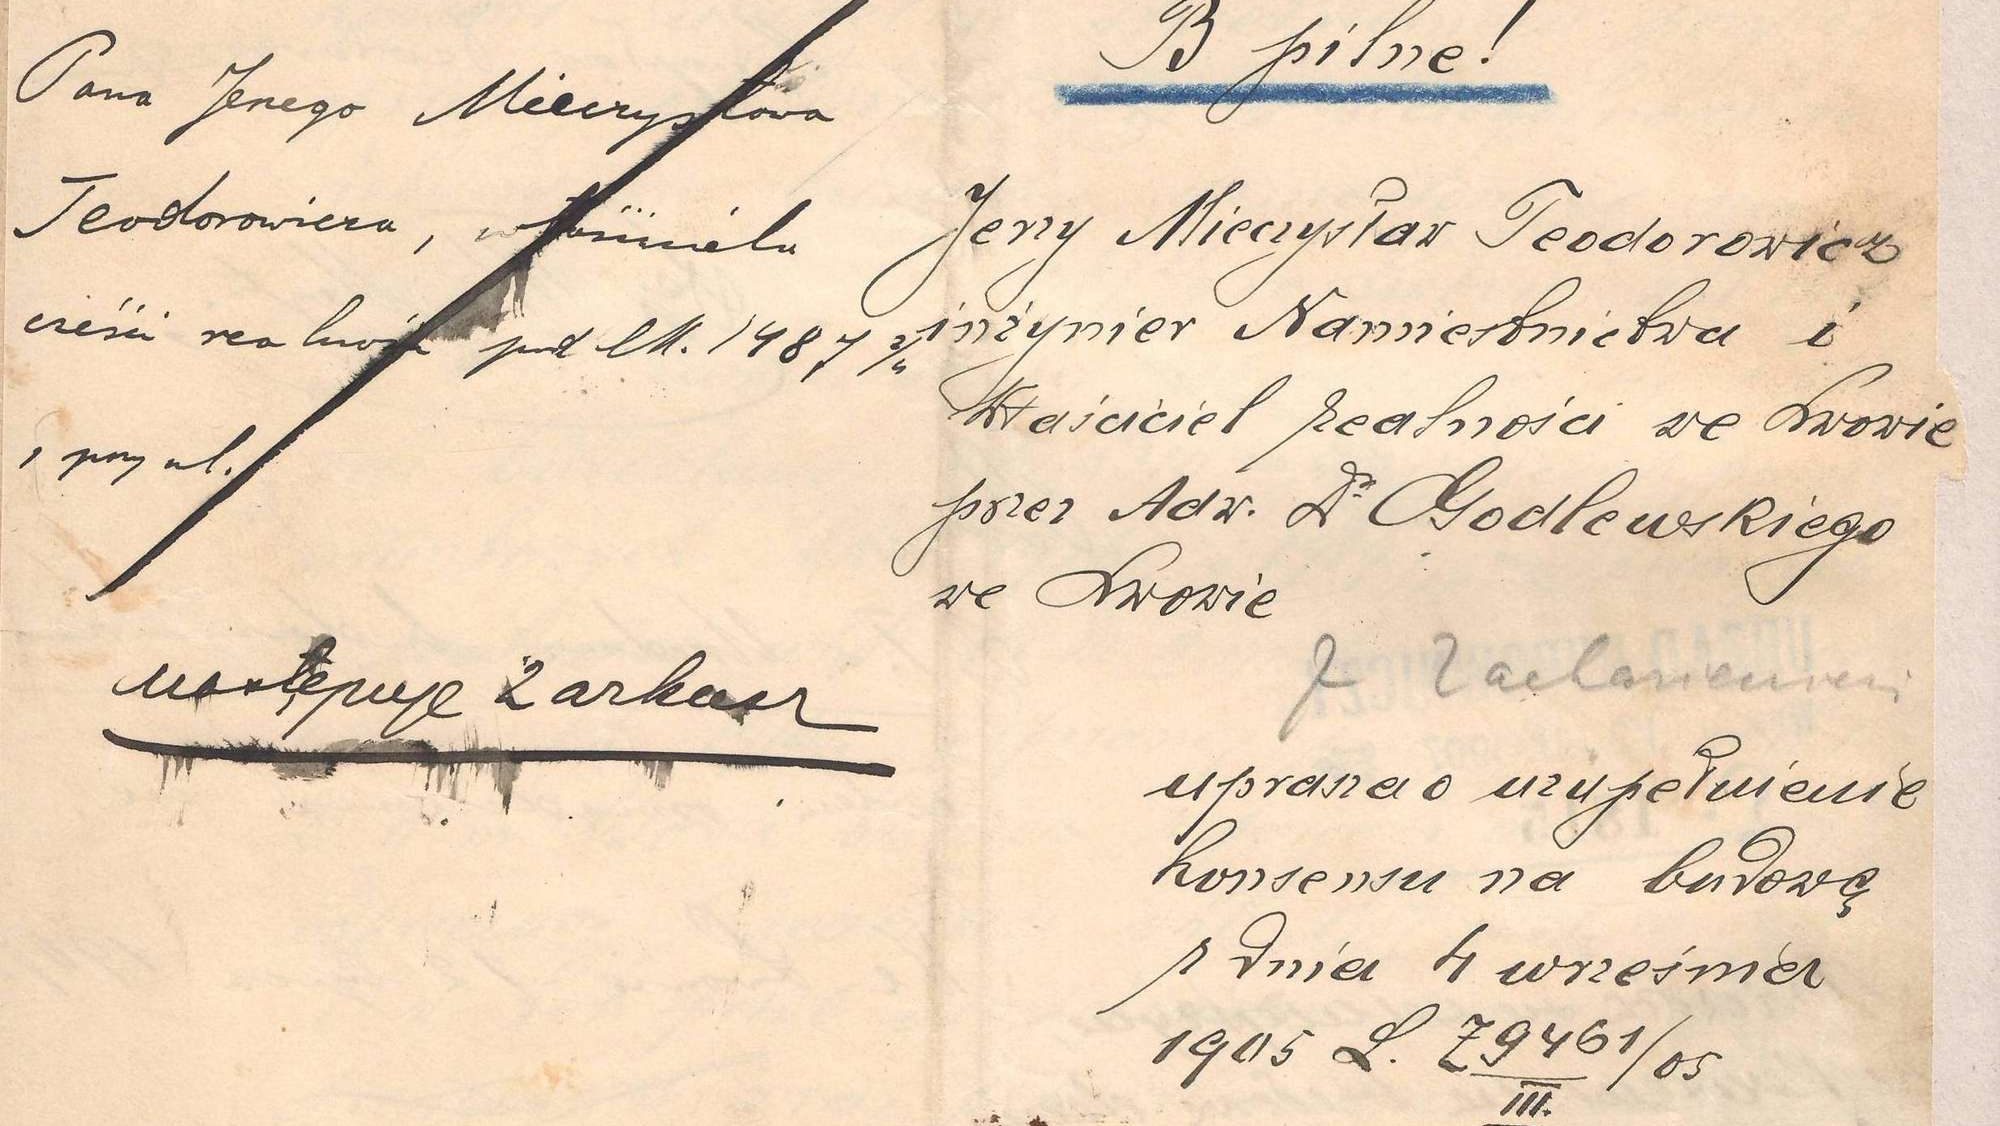 Pana Jerzego Mieczysława
Teodorowicza, właściciela
części realności pod lk. 1487 2/4
przy ul.
następuje 2 arkusz
B pilne!
Jerzy Mieczysław Teodorowicz
inżynier Namiestnictwa i
Właściciel realności we Lwowie
przez Adw. Dr Godlewskiego
we Lwowie
uprasza o uzupełnienie
konsensu na budowę
z dnia 4 września
1905 L. 79461/05
III.